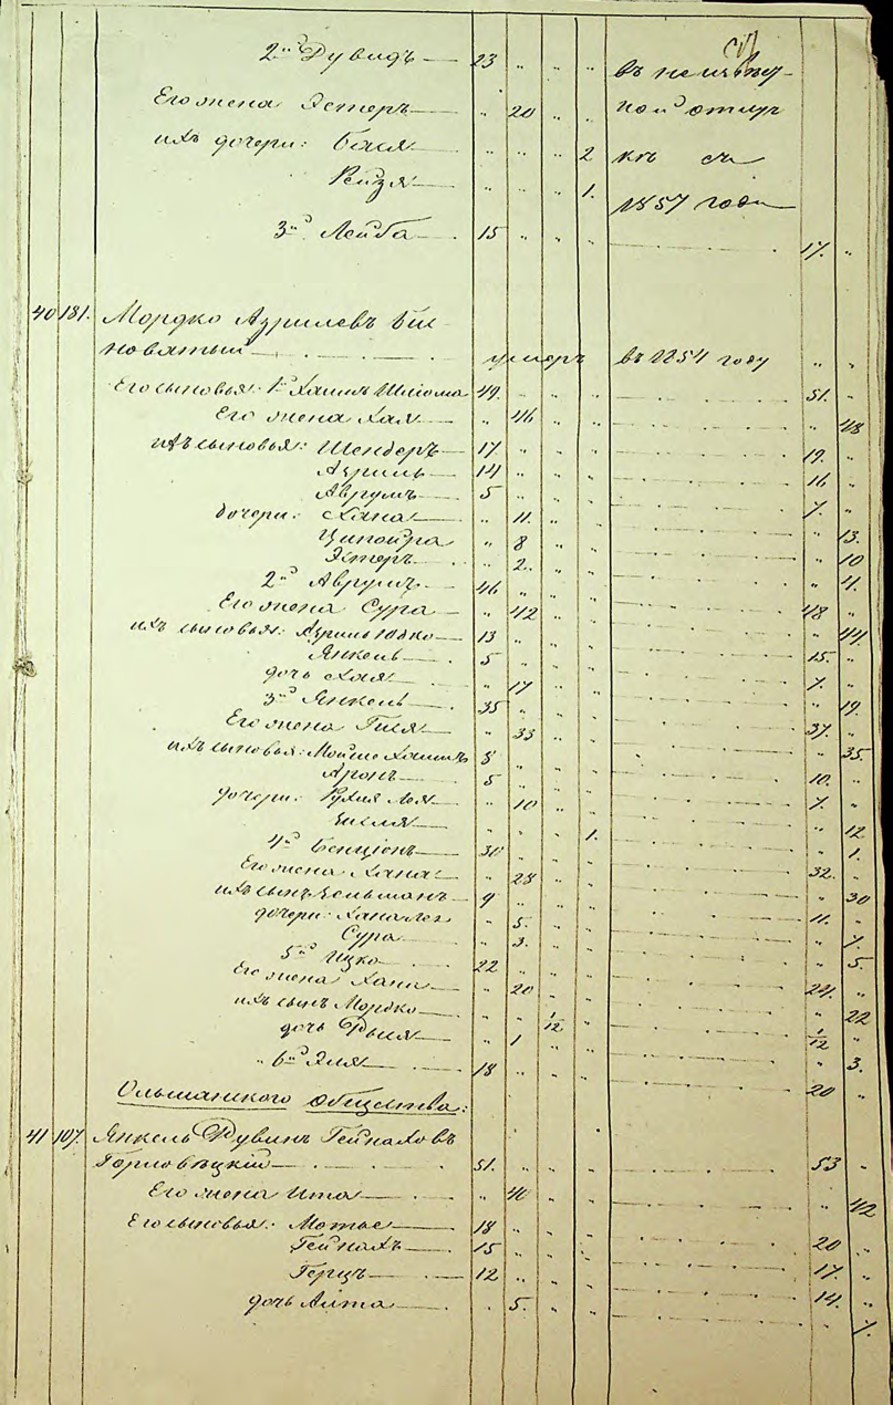 2й Дувидъ — 23 " " " въ неизвѣст-
Его жена Эстеръ — " 20 " " ной отлуч
ихъ дочери: Бася — " " " 2 кѣ съ
Рейзя — " " " 1. 1857 года
3й Лейба — 15 " " " 17. "
40 181. Мордко Азрилевъ
новатый — умеръ въ 1854 году " "
Его сыновья: 1й Хаимъ Шліома 49. " " " 51. "
Его жена Хая — " 46 " " " 48
ихъ сыновья: Шендеръ — 17 " " " 19. "
Азриль — 14 " " " 16 "
Аврумъ — 5 " " " 7. "
дочери: Хана — " 11. " " " 13.
Ципойра " 8 " " " 10
Эстеръ " 2. " " " 4.
2й Аврумъ — 46 " " " 48 "
Его жена Сура — " 42 " " " 44.
ихъ сыновья: Азриль Юдко — 13 " " " 15. "
Янкель — 5 " " " 7. "
дочь Хая — " 17 " " " 19.
3й Янкель — 35 " " " 37. "
Его жена Гися — " 33 " " " 35.
ихъ сыновья: Мойше Хаимъ 8 " " " 10. "
Аронъ — 5 " " " 7. "
дочери: Рухля Лея — " 10 " " " 12
— " " " 1. " 1.
4й Бенціонъ — 30 " " " 32. "
Его жена Хана — " 28 " " " 30
ихъ сынъ Зельманъ — 9 " " " 11. "
дочери: Хана Лея " 5. " " " 7.
Сура — " 3. " " " 5.
5й Ицко — 22 " " " 24. "
Его жена Хана — " 20 " " " 22
ихъ сынъ Мордко — " " 1/12 " 1/12 "
дочь — " 1 " " " 3.
6й Эля — 18 " " " 20 "
Ольшанского общества:
41 107. Янкель Рувинъ Гейнаховъ
Горловецкій — 51. " " " 53 "
Его жена Ита — " 40 " " " 42
Его сыновья: Мотье — 18 " " " 20 "
Гейнахъ — 15 " " " 17. "
Герцъ — 12 " " " 14. "
дочь — " 5. " " " 7.